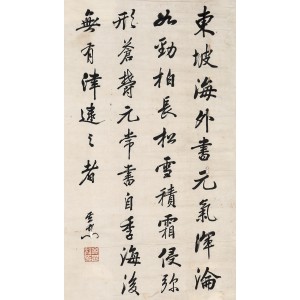 東坡海外書元氣渾淪
如勁柏長松雪積霜侵弥
形蒼鬱元常書自季海後
無有偉遠之者